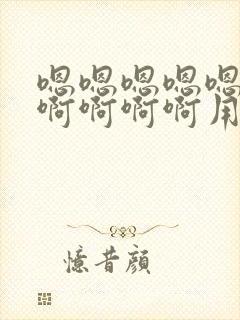 嗯嗯嗯嗯嗯
啊啊啊啊用
憶昔顔